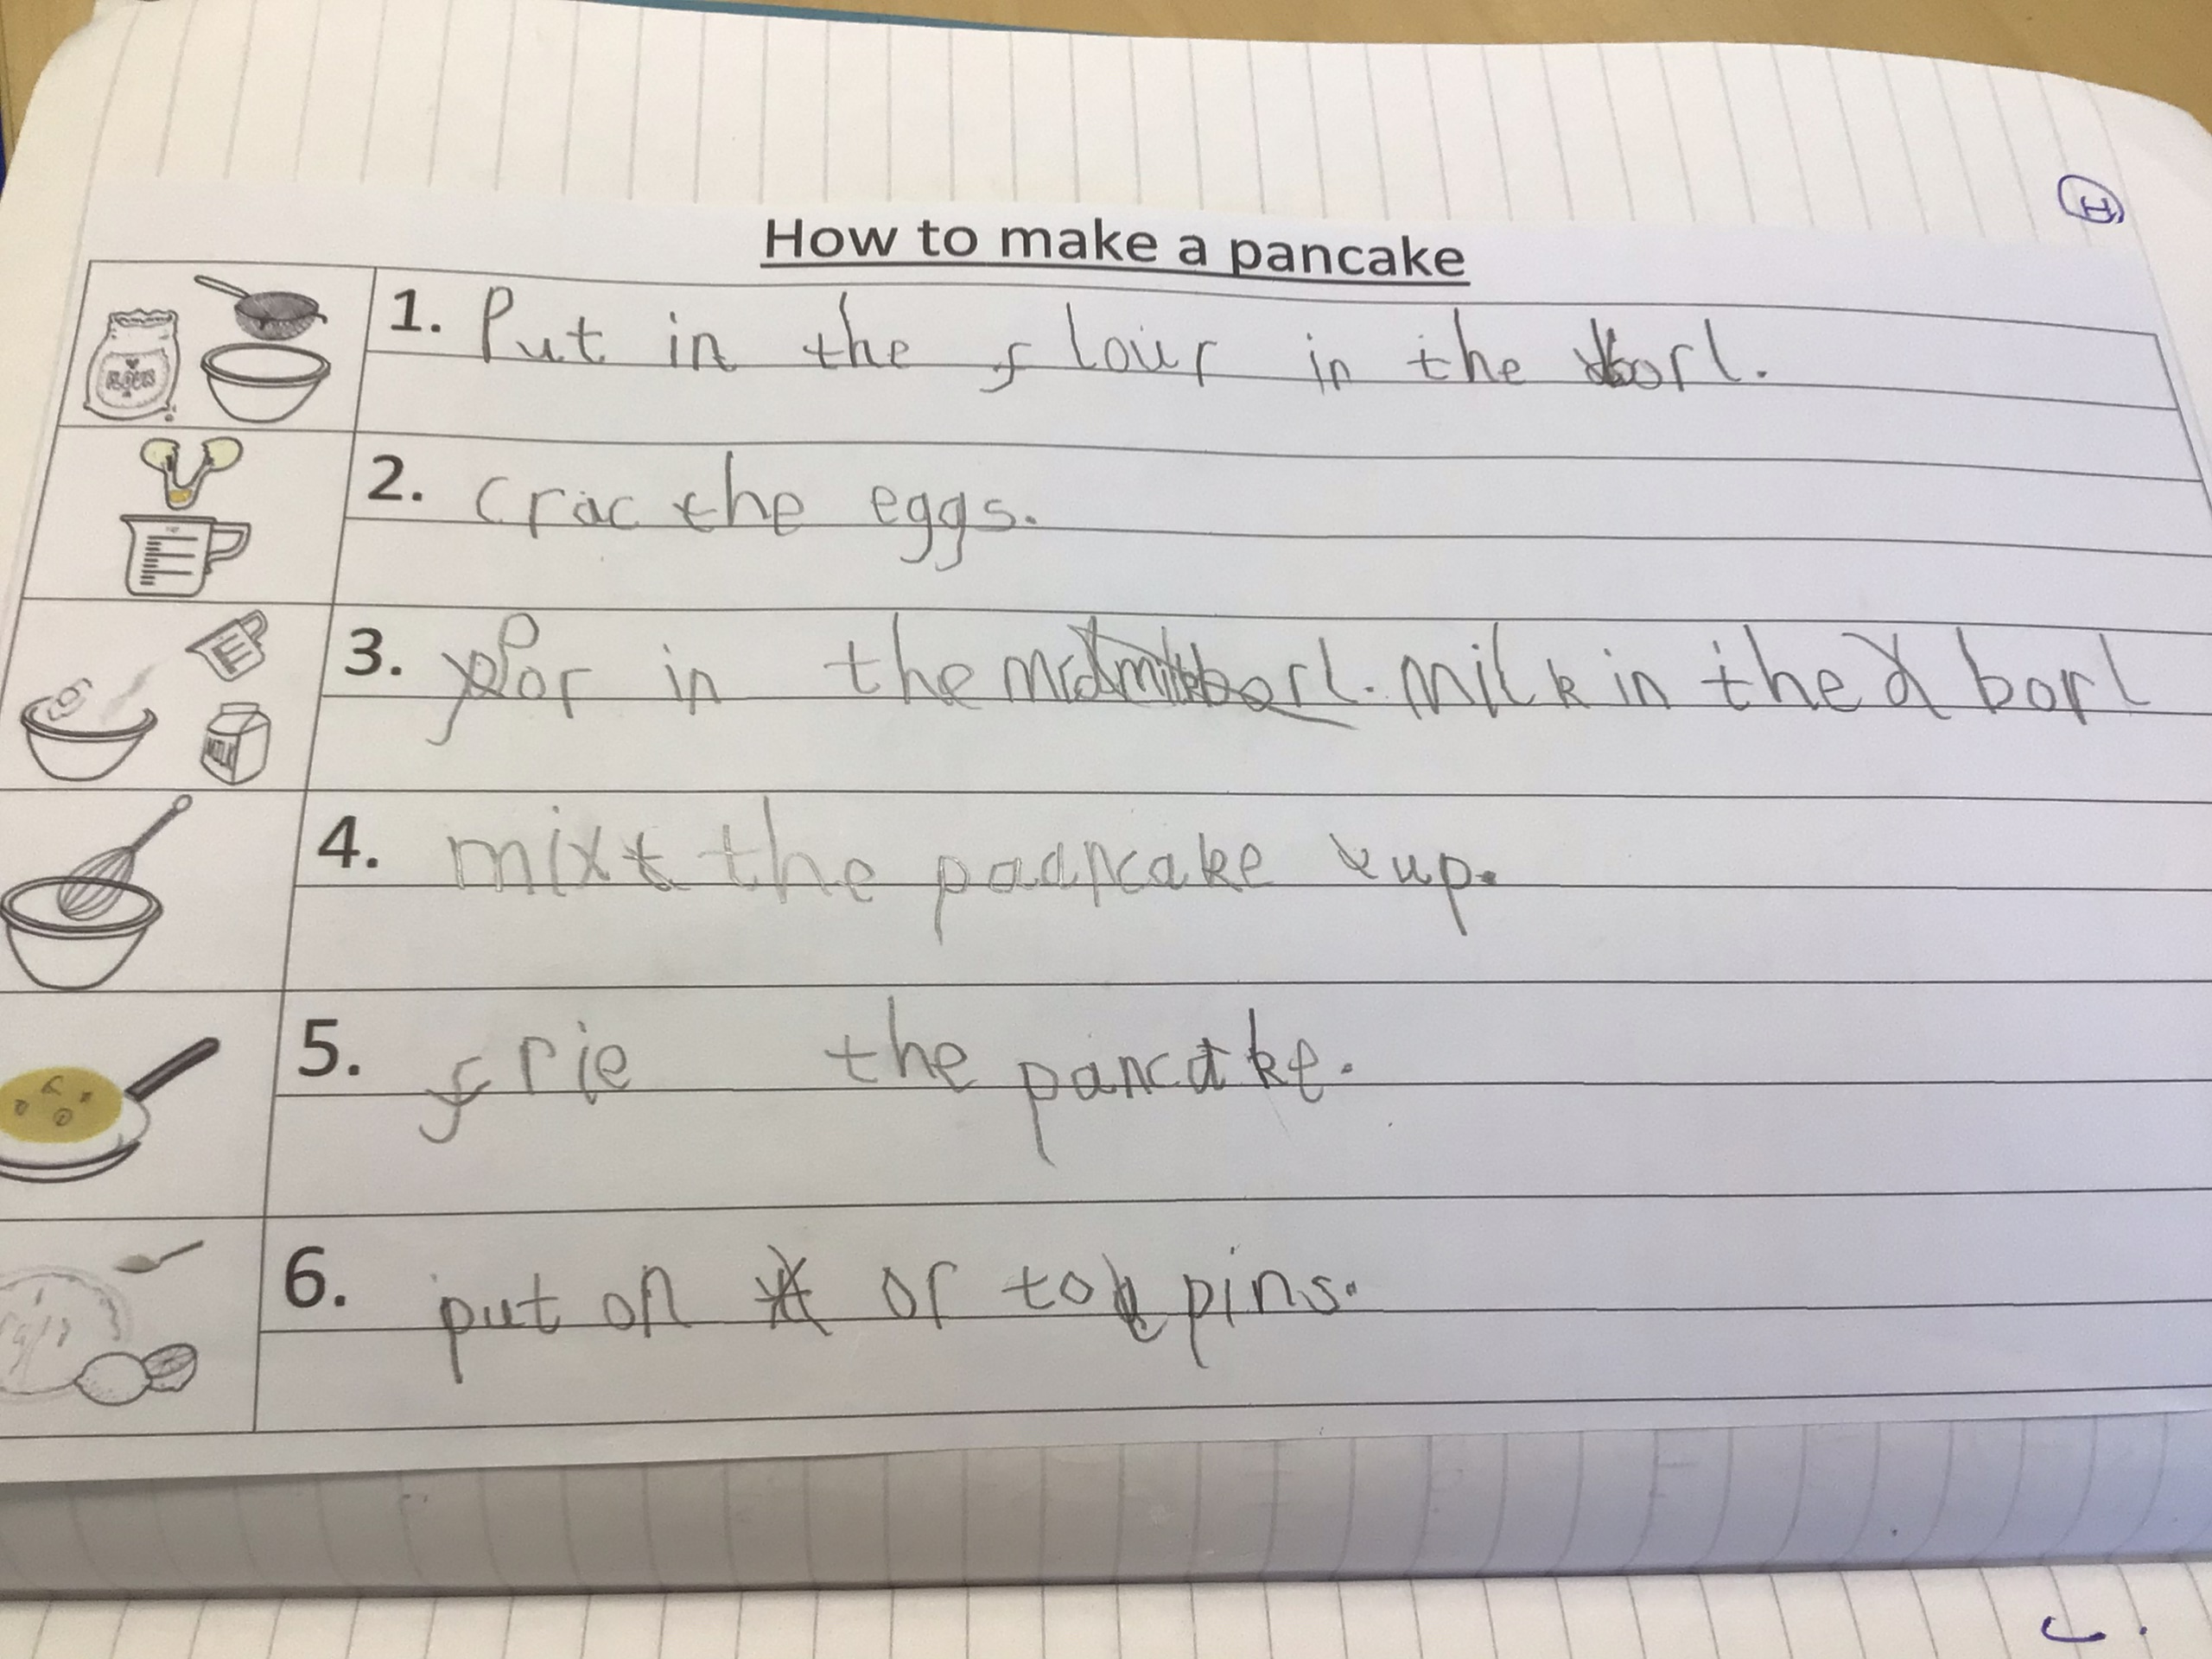 H
How to make a pancake
1. Put in the flour in the borl.
FLOUR
2. crac the eggs.
3. Por in the milk in the borl
MILK
4. mix the pancake up.
5. frie the pancake.
6. put on or toppins.